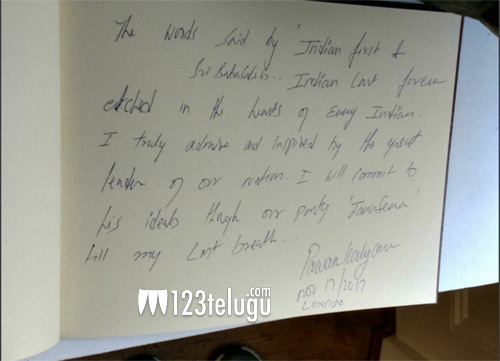 The words said by "Indian first &
Sri Babasaheb.. Indian Last forever
etched in the hearts of Every Indian.
I truly admire and inspired by the great
leader of our nation. I will commit to
his ideals though our party 'JanaSena'
till my last breath...
Pawankalyan
Nov 17/2017
123telugu.com